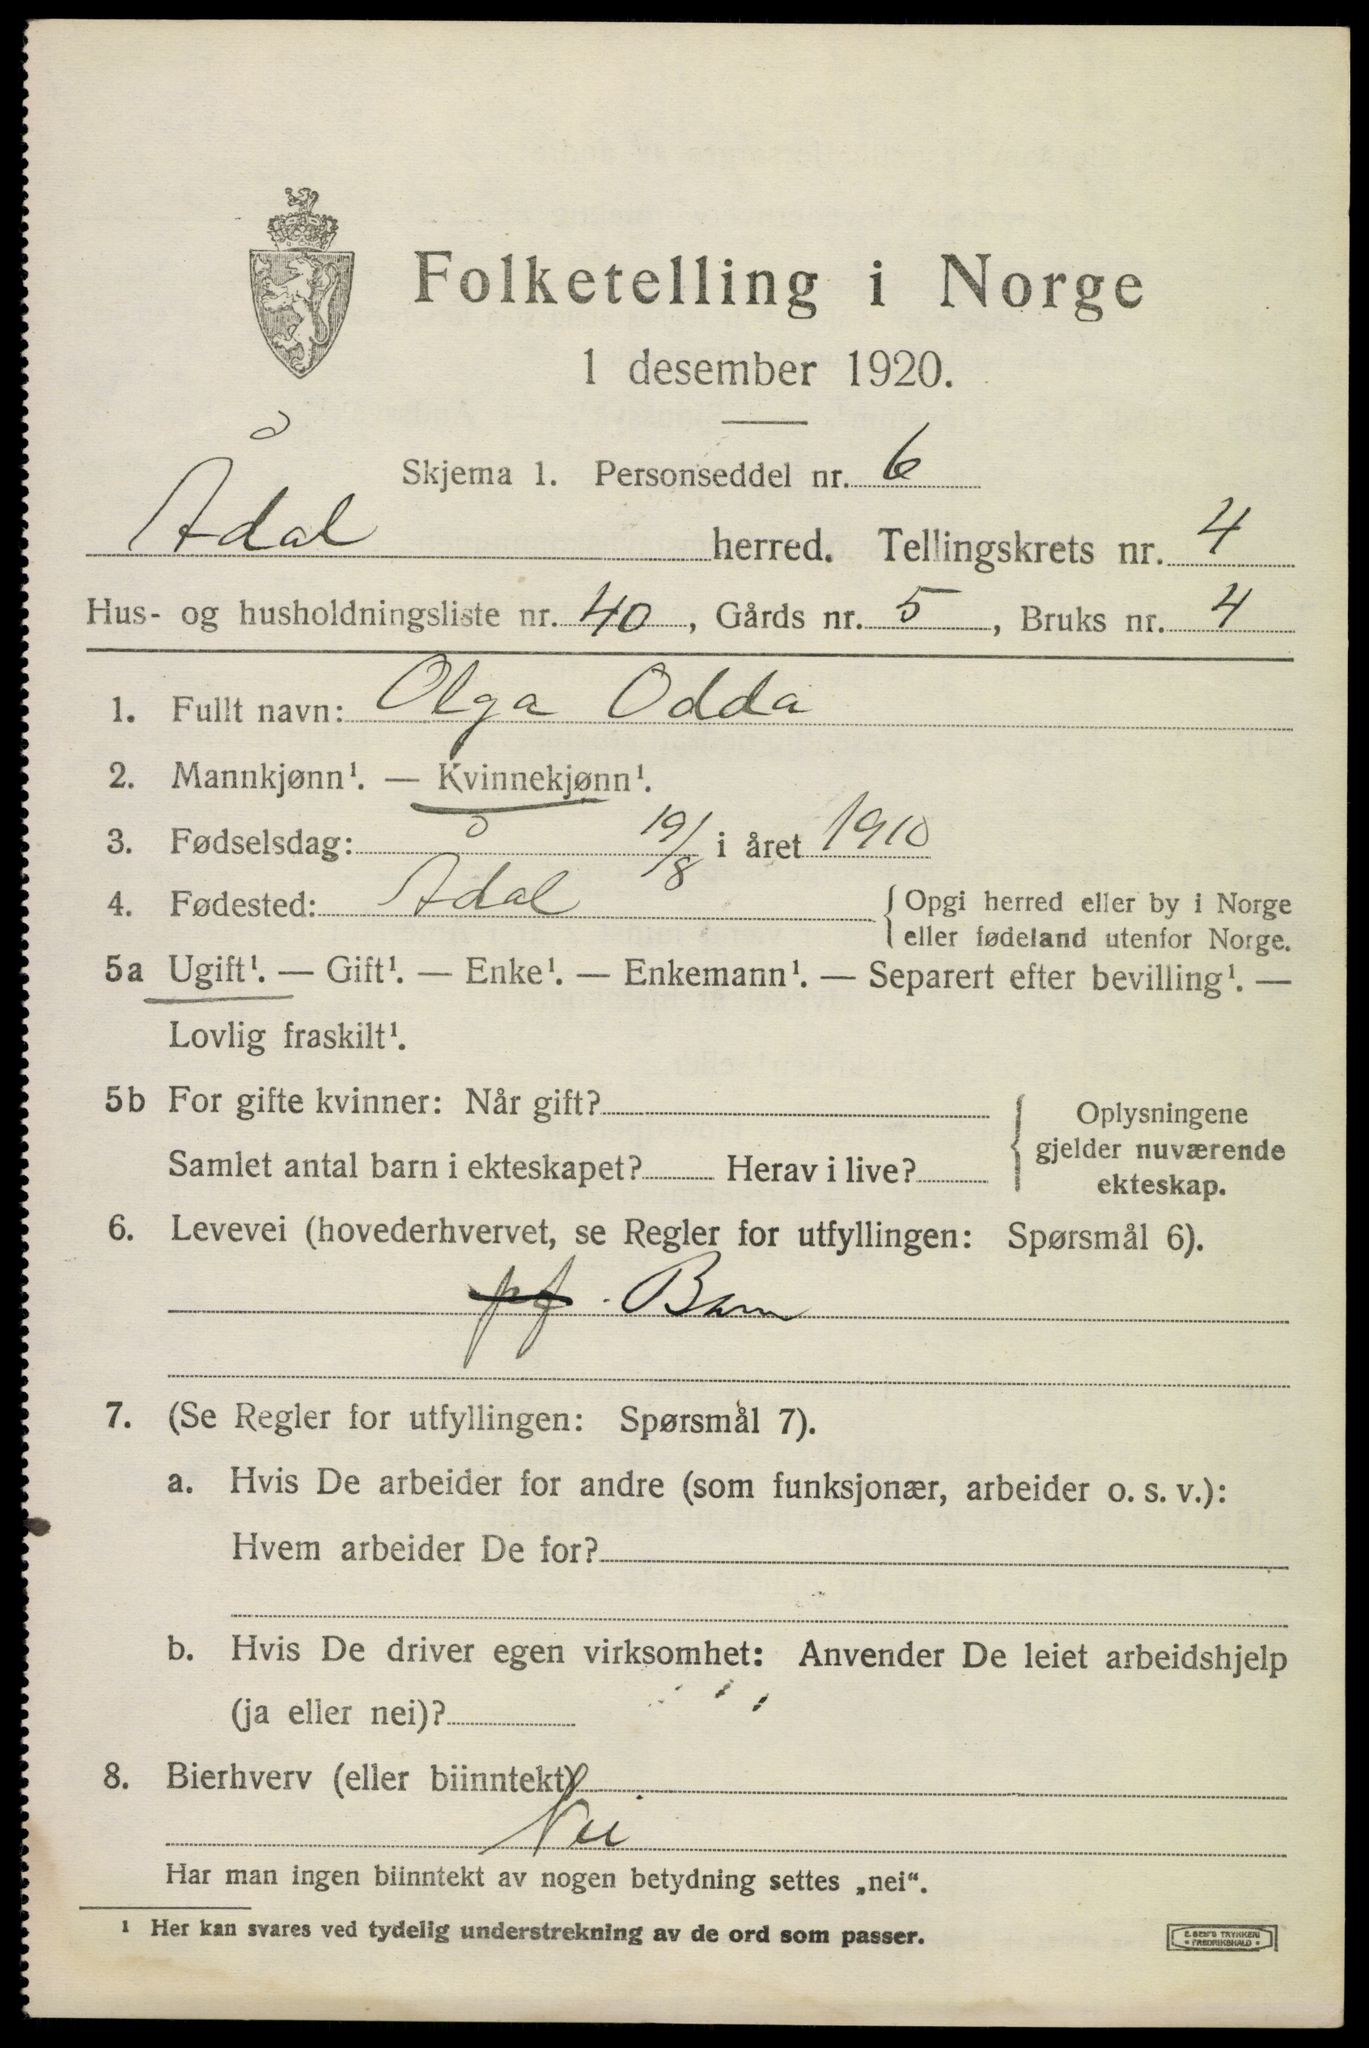 Folketelling i Norge
1 desember 1920.
Skjema 1. Personseddel nr. 6
Ådal herred. Tellingskrets nr. 4
Hus- og husholdningsliste nr. 40, Gårds nr. 5, Bruks nr. 4
1. Fullt navn: Olga Odda
2. Mannkjønn¹. — Kvinnekjønn¹.
3. Fødselsdag: 19/8 i året 1910
4. Fødested: Ådal { Opgi herred eller by i Norge
eller fødeland utenfor Norge.
5a Ugift¹. — Gift¹. — Enke¹. — Enkemann¹. — Separert efter bevilling¹. —
Lovlig fraskilt¹.
5b For gifte kvinner: Når gift? { Oplysningene
gjelder nuværende
ekteskap.
Samlet antal barn i ekteskapet? Herav i live?
6. Levevei (hovederhvervet, se Regler for utfyllingen: Spørsmål 6).
pf. Barn
7. (Se Regler for utfyllingen: Spørsmål 7).
a. Hvis De arbeider for andre (som funksjonær, arbeider o. s. v.):
Hvem arbeider De for?
b. Hvis De driver egen virksomhet: Anvender De leiet arbeidshjelp
(ja eller nei)?
8. Bierhverv (eller biinntekt)
Nei
Har man ingen biinntekt av nogen betydning settes „nei“.
¹ Her kan svares ved tydelig understrekning av de ord som passer.
E. SEM'S TRYKKERI
• FREDRIKSHALD •